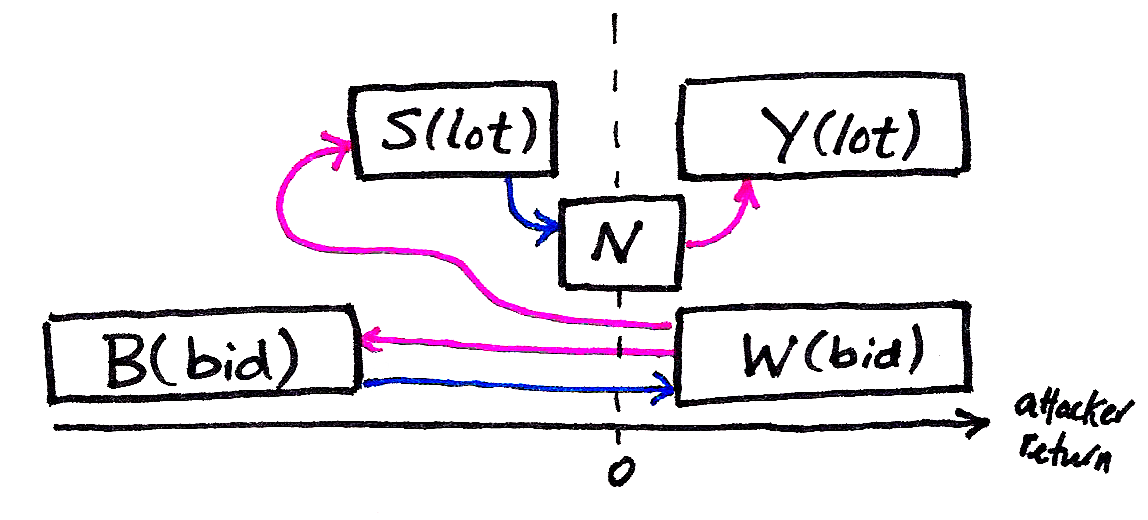 S(lot)
Y(lot)
N
B(bid)
W(bid)
attacker
return
0